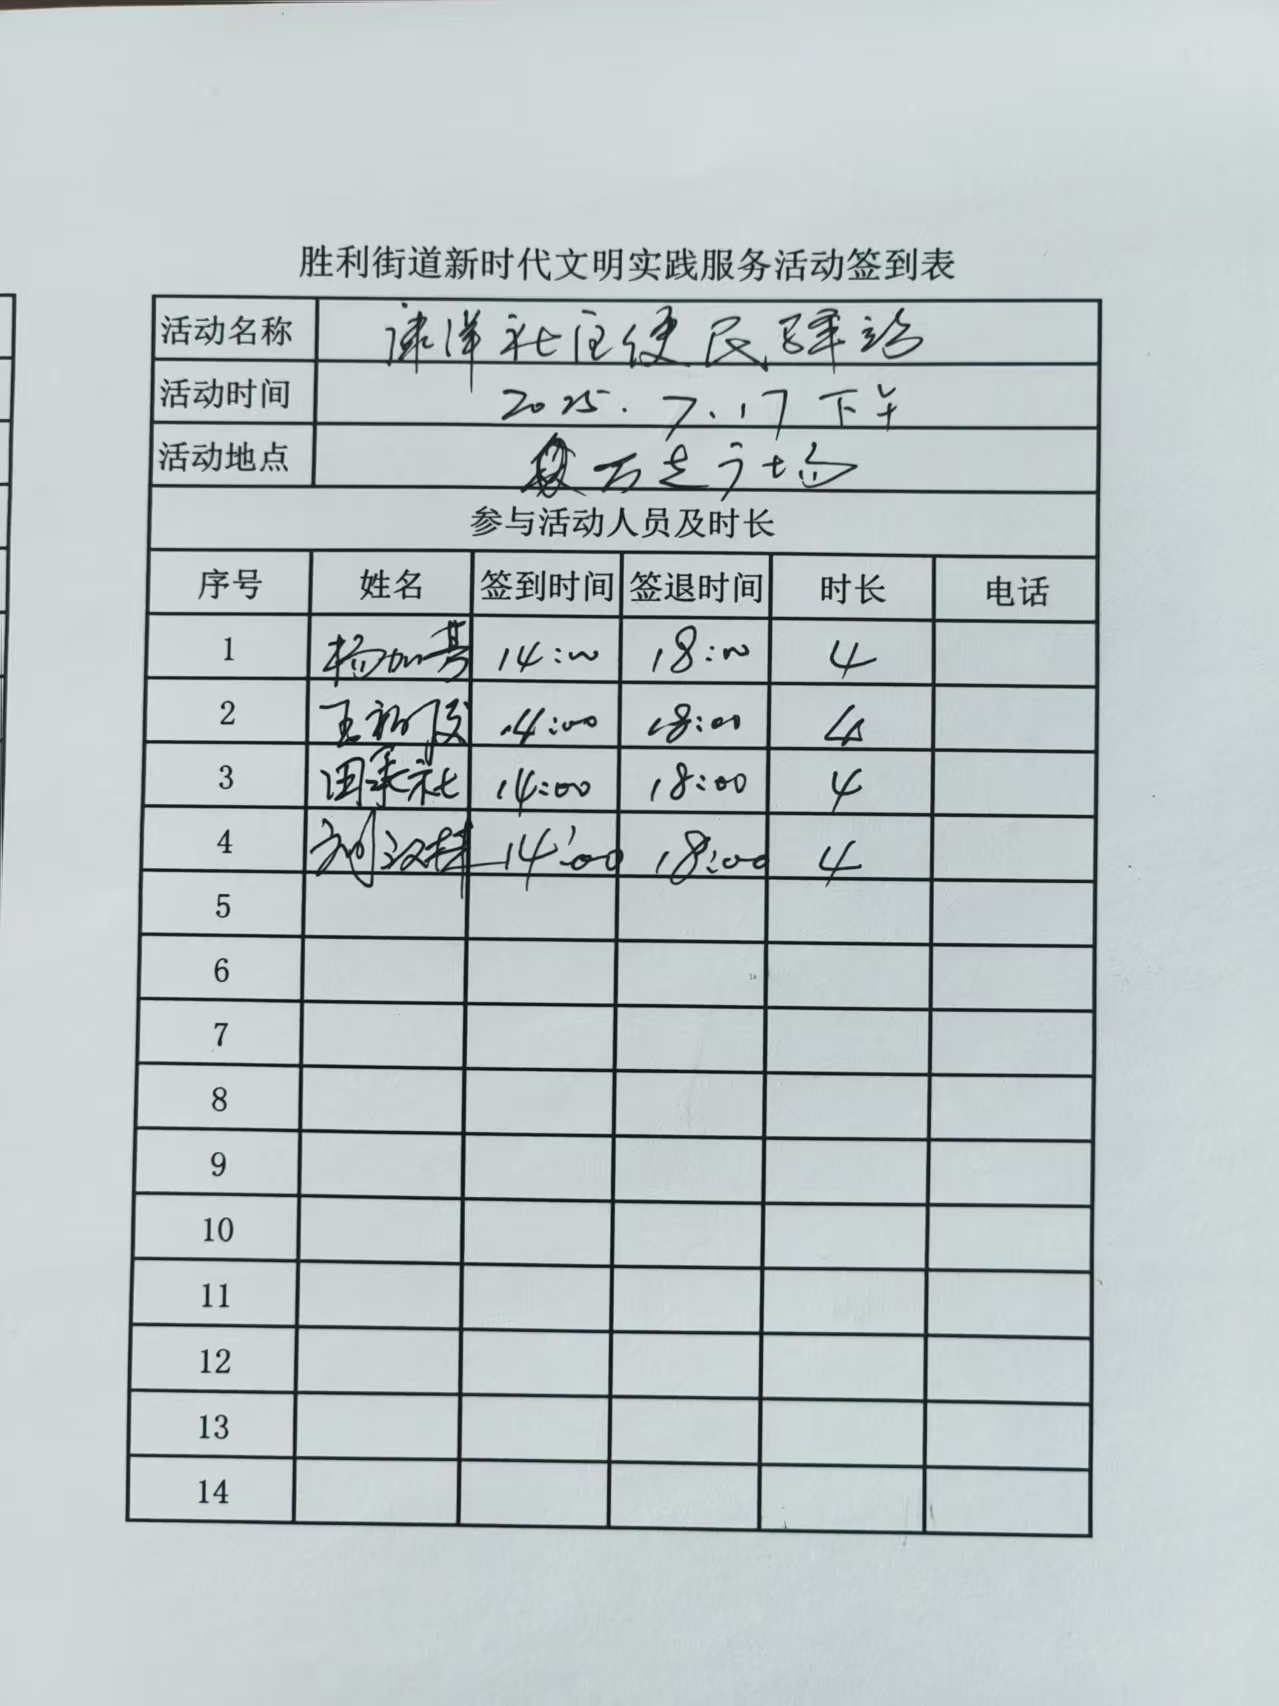 胜利街道新时代文明实践服务活动签到表
活动名称 社区便民驿站
活动时间 2025.7.17 下午
活动地点 万达广场
参与活动人员及时长
序号 姓名 签到时间 签退时间 时长 电话
1 杨 14:00 18:00 4
2 王 14:00 18:00 4
3 田承社 14:00 18:00 4
4 刘汉 14:00 18:00 4
5
6
7
8
9
10
11
12
13
14